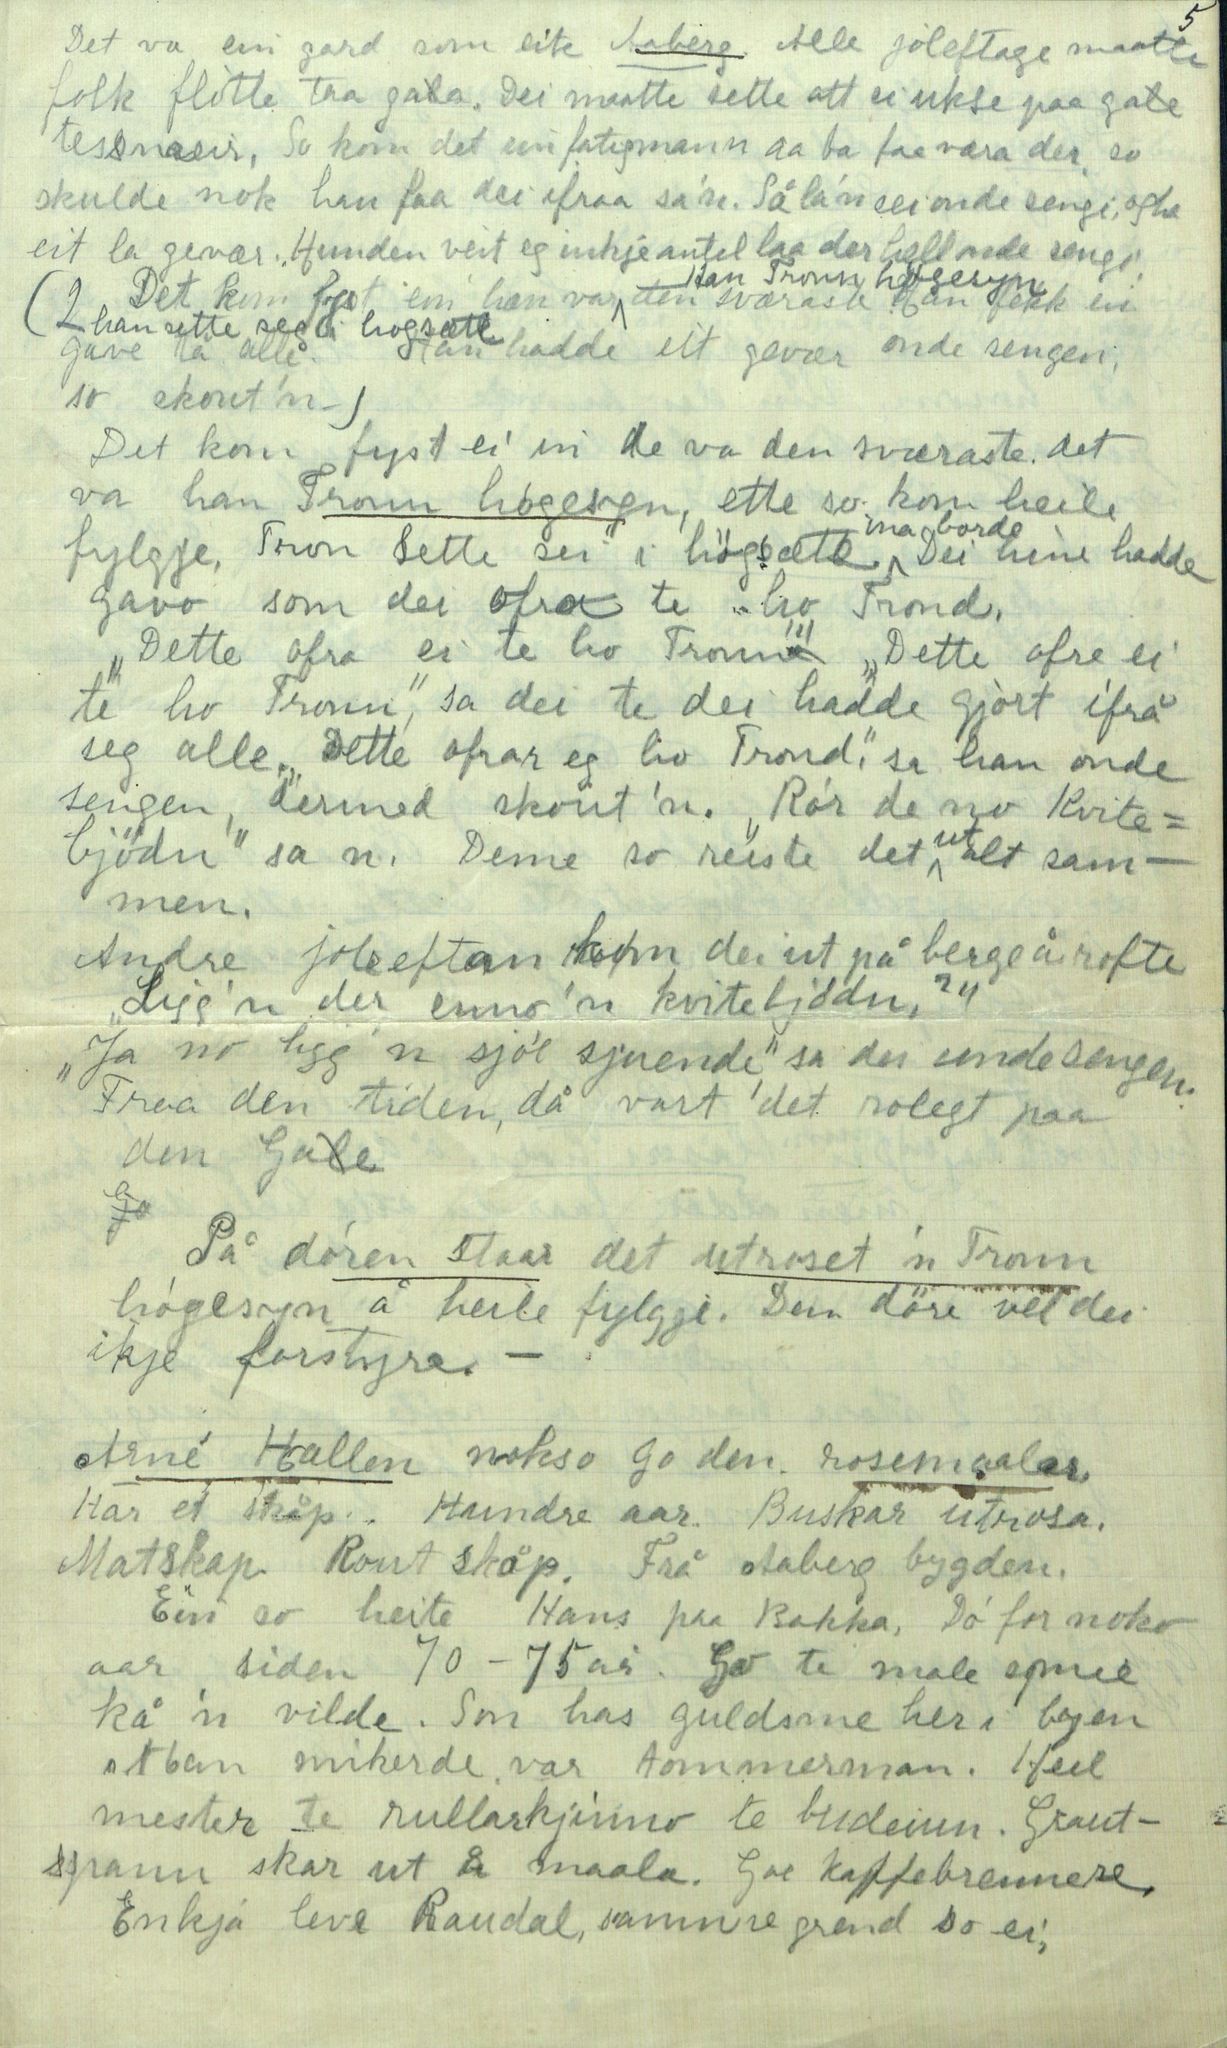 5
Det va ein gard som eite Aaberg. Alle joleftage maatte
folk flòtte taa gala. Dei maatte sette att ei ukse paa gale
So kom det ein fatigmann aa ba faa vara der, so
skulde nok han faa dei ifraa sa'n. Så la'n sei onde sengi, og ha
eit la gevær. Hunden veit eg inkje antel laa der hell onde sengi.
han Tronn høgesyn
(2 Det kom fyst ein han var den sværaste. Han fekk ei
han sette seg i hogsætt
gave tå alle. Han hadde eit gevær onde sengen,
so skout'n-)
Det kom fyst ei in de va den sværaste. det
va han Tronn högesyn, ette so kom heile
ina borde
fylgje. Tron sette sei i högsætt. Dei hine hadde
gavo som dei ofra te ho Trond.
"Dette ofra ei te ho Tronn" "Dette ofre ei
te ho Tronn", sa dei te dei hadde gjòrt ifrå
seg alle. "Dette ofrar eg ho Trond," sa han onde
sengen, dermed skout'n. "Rór de no Kvite=
bjödn" sa n. Deme so reiste det ut alt sam-
men.
Andre joleeftan kom dei ut på berge å rofte
"Ligg'n der enno'n kvitebjödn,?"
"Ja no ligg'n sjól sjuende" sa dei unde sengen.
Fraa den tiden, då vart det rolegt paa
den Gale
På dóren staar det utroset 'n Tronn
hógesyn å heile fylgje. Den döre vel dei
ikje forstyre. -
Arne Hallen nokso go den. rosemaalar.
Har et skåp. Hundre aar. Buskar utrosa.
Matskap. Rout skåp. Frå Aaberg bygden.
Ein so heite Hans paa Bakka. Dó for noko
aar siden 70 - 75 år. Go te male
kå 'n vilde. Son has guldsme her i byen
var tommerman. Heil
mester te rullarkjinno te budeiun. Graut-
spann skar ut å maala. Goe kaffebrennere.
Enkjå leve Raudal, samme grend so ei,